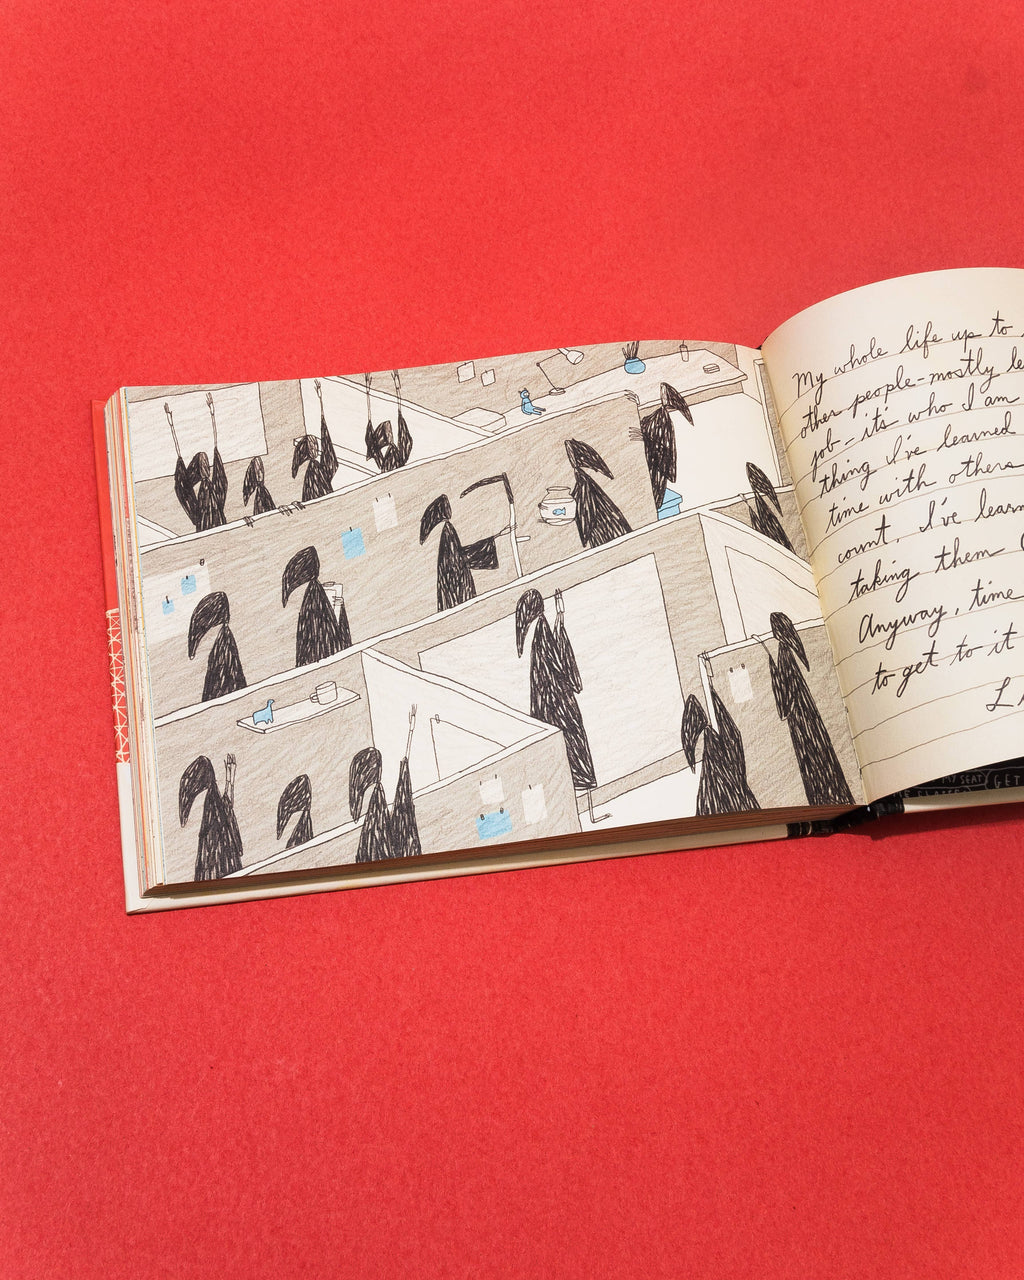 My whole life up to
other people-mostly
job-it's who I am
thing I've learned
time with others
count. I've learn
taking them
Anyway, time
to get to it
L
MY SEAT
GET